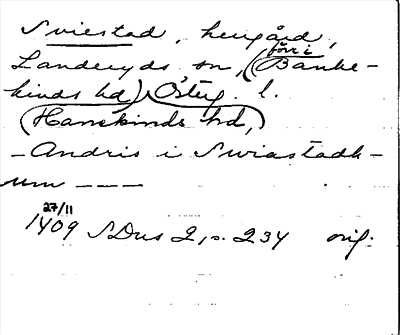 Sviestad, herrgård,
Landeryds sn, (förr i Banke-
kinds hd) Östg. l.
(Hanekinds hd,)
- Andris i Swiastadh -
um - - -
27/11
1409 SDns 2, s. 234 orig.